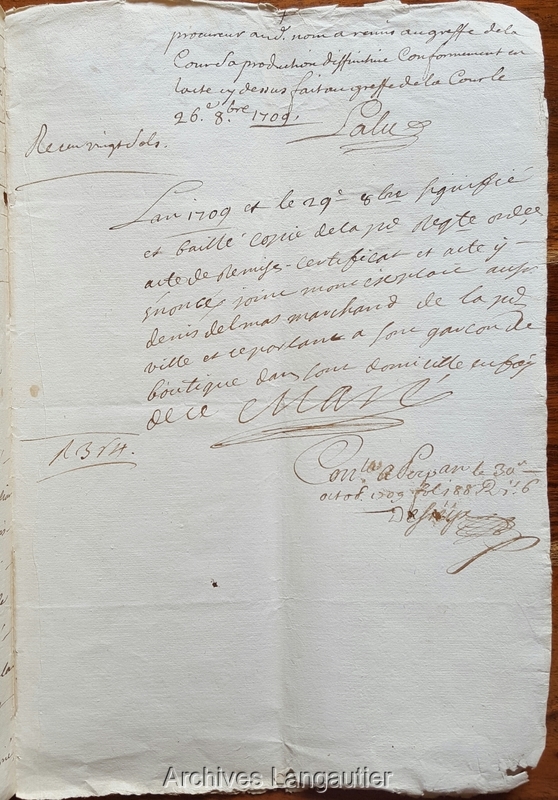 procureur aud. nom a remis au greffe de la
Cour Sa production diffinitive Conformement en
lacte cy dessus fait au greffe de la Cour le
26.e 8.bre 1709.
Lalu
Receu vingt Sols.
Lan 1709 et le 29e 8bre signiffié
et baillé copie de la pnt Reqte ordce
acte de Remise certificat et acte y
énoncés joint mon exploit au sr
denis delmas marchand de la pnt
ville et ce parlant a son garçon de
boutique dans son domicille en foy
de ce
1 3 s 4 d.
Conlle a le 30e
octob. 1709 fol 188 R 6